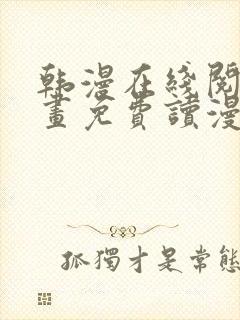 韩漫在线阅
畫免費讀漫
孤獨才是常態